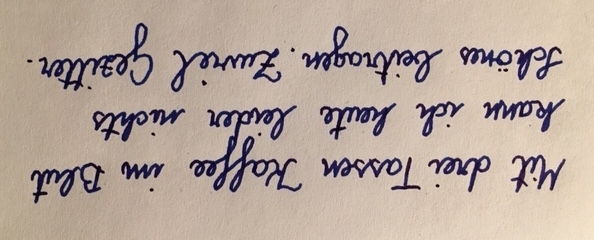 Mit drei Tassen Kaffee im Blut
kann ich heute leider nichts
Schönes beitragen. Zuviel Gezitter.